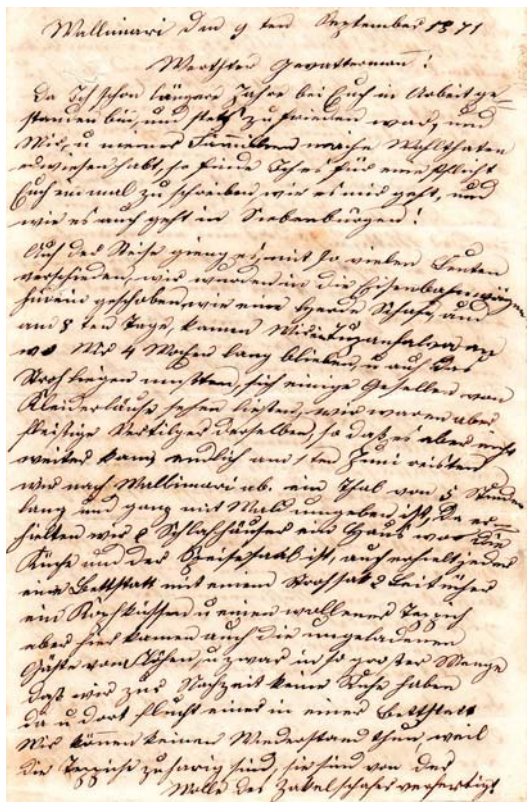 Wallimari den 9 ten September 1871
Werthster Gevattermann!
Da Ich schon längere Jahre bei Euch in Arbeit ge-
standen bin, und stets zufrieden war, und
Mir, u meiner Familien manche Wohlthaten
erwiesen habt, so finde Ich es für eine Pflicht
Euch einmal zu schreiben, wie es mir geht, und
wie es auch geht in Siebenbürgen!
Auf der Reise gieng es, mit so vielen Leuten
verschieden, wir wurden in die Eisenbahnwägen
hinein geschoben, wie eine Heerde Schafe, und
am 8 ten Tage, kamen Wir in an
wo Wir 4 Wochen lang blieben, u auf das
Stroh liegen mußten, sich einige Gesellen von
Kleiderläuse sehen liesten, wir waren aber
fleißige Vertilger derselben, so daß es aber nicht
weiter kam, endlich am 1ten Juni reisten
wir nach Wallimari ab. ein Thal von 5 Stunden
lang und ganz mit Wald umgeben ist, Da er-
hielten wir 2 Schlafhäuser ein Haus wo die
Küche und der Speisesaal ist, auch erhielt jeder
eine Bettstatt mit einem Strohsak 2 Leitücher
ein Kopfkissen u einen wollenen Teppich
aber hier kamen auch die ungeladenen
Gäste vom Flöhen, u zwar in so großer Menge
daß wir zur Nachtzeit keine Ruhe haben
da u dort flucht einer in einer Bettstatt
Wir können keinen Wiederstand thun, weil
die Teppiche zu harig sind, sie sind von der
Wolle des Zakelschafes verfertigt